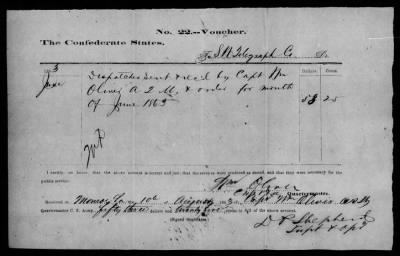 No. 22.--Voucher.
The Confederate States,
To S W Telegraph Co Dr.
Dollars. Cents.
3
June Dispatches Sent & Recd by Capt Wm
Oliver A Q M. & order for month 53 25
of June 1863
I certify, on honor, that the above account is correct and just; that the services were rendered as stated, and that they were necessary for the
public service.
Wm Oliver
Capt & Quartermaster.
Received at Monroe 3 of Capt Wm Oliver
Quartermaster C. S. Army, fifty three dollars and twenty five cents, in full of the above account.
(Signed duplicates.)
D P Shepherd
Supt & Opr